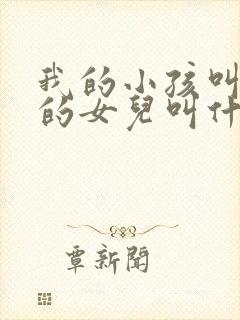 我的小孩叫
的女兒叫什
覃新聞